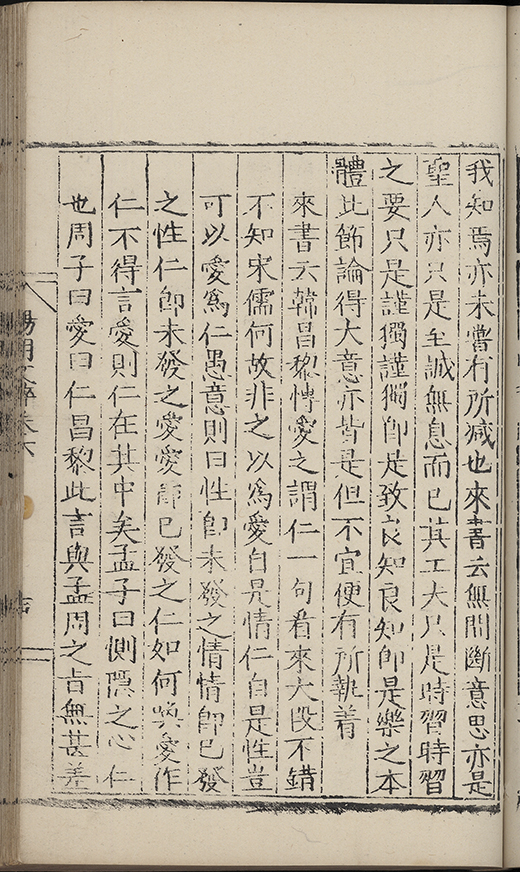 我知焉亦未嘗有所減也來書云無間斷意思亦是
聖人亦只是至誠無息而已其工夫只是時習時習
之要只是謹獨謹獨即是致良知良知即是樂之本
體此節論得大意亦皆是但不宜便有所執着
來書云韓昌黎愽愛之謂仁一句看來大段不錯
不知宋儒何故非之以爲愛自是情仁自是性豈
可以愛爲仁愚意則曰性即未發之情情即已發
之性仁即未發之愛愛即已發之仁如何喚愛作
仁不得言愛則仁在其中矣孟子曰惻隱之心仁
也周子曰愛曰仁昌黎此言與孟周之旨無甚差
陽明文粹卷六